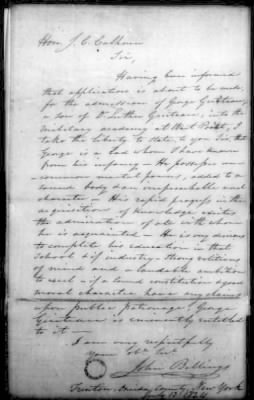 Hon. J. C. Calhoun
Sir,
Having been informed
that application is about to be made
for the admission of George Guiteau,
a son of Dr Luther Guiteau, into the
Military academy at West Point, I
take the liberty to state to you Sir, that
George is a lad whom I have known
from his infancy — He possesses un
common mental powers, added to a
sound body & an irreproachable moral
character — His rapid progress in the
acquisition of knowledge excites
the admiration of all with whom
he is acquainted — He is very desirous
to complete his education in that
School & if industry, strong
of mind and a laudable ambition
to excel & if a sound constitution & good
moral character have any claims
upon public patronage George
Guiteau is eminently entitled
to it —
I am very respectfully
your Obt. Svt.
John Billings
Trenton Oneida County, New York